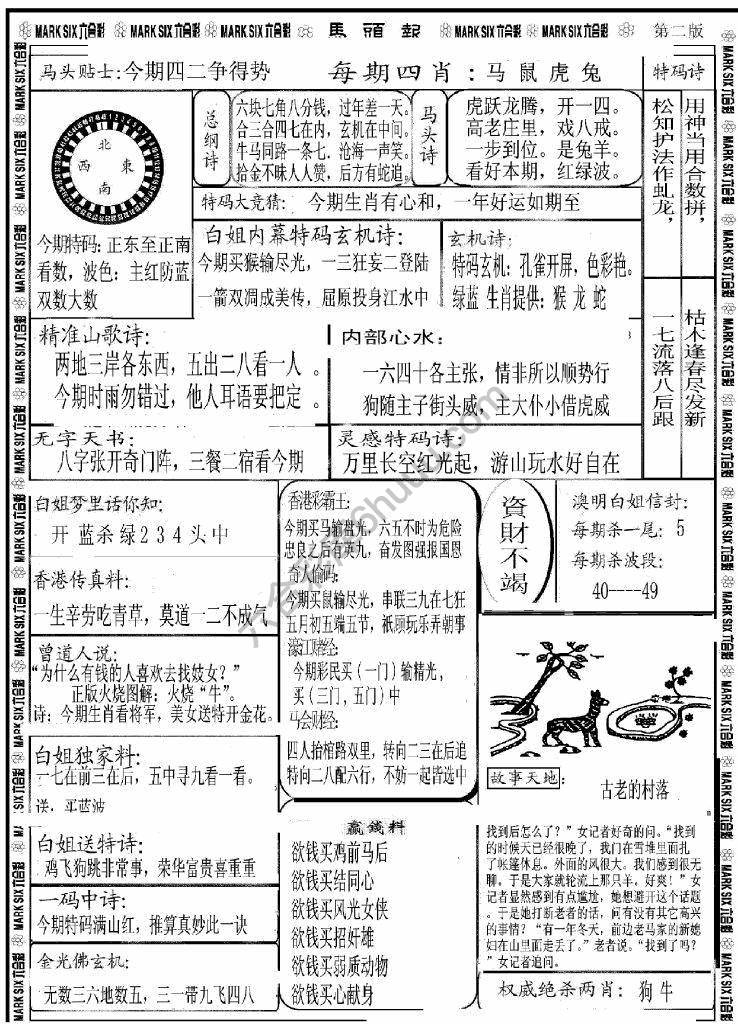 MARK SIX 六合彩 MARK SIX 六合彩 MARK SIX 六合彩 馬頭報 MARK SIX 六合彩 MARK SIX 六合彩 MARK SIX 六合彩 第二版
马头贴士:今期四二争得势 每期四肖:马鼠虎兔
特码诗
用神当用合数拼,
松知护法作虬龙,
枯木逢春尽发新
一七流落八后跟
北
西 東
南
今期特码:正东至正南
看数,波色:主红防蓝
双数大数
总纲诗
六块七角八分钱,过年差一天。
合二合四七在内,玄机在中间。
牛马同路一条七.沧海一声笑。
拾金不昧人人赞,后方有蛇追。
马头诗
虎跃龙腾,开一四。
高老庄里,戏八戒。
一步到位。是兔羊。
看好本期,红绿波。
特码大竞猜: 今期生肖有心和,一年好运如期至
白姐内幕特码玄机诗:
今期买猴输尽光,一三狂妄二登陆
一箭双凋成美传,屈原投身江水中
玄机诗:
特码玄机:孔雀开屏,色彩艳。
绿蓝 生肖提供:猴 龙 蛇
精准山歌诗:
两地三岸各东西,五出二八看一人。
今期时雨勿错过,他人耳语要把定。
内部心水:
一六四十各主张,情非所以顺势行
狗随主子街头威,主大仆小借虎威
无字天书:
八字张开奇门阵,三餐二宿看今期
灵感特码诗:
万里长空红光起,游山玩水好自在
白姐梦里话你知:
开 蓝杀绿234头中
香港传真料:
一生辛劳吃青草,莫道一二不成气
曾道人说:
“为什么有钱的人喜欢去找妓女?”
正版火烧图解:火烧“牛”。
诗:今期生肖看将军,美女送特开金花。
白姐独家料:
一七在前三在后,五中寻九看一看。
送,买蓝波
白姐送特诗:
鸡飞狗跳非常事,荣华富贵喜重重
一码中诗:
今期特码满山红,推算真妙此一诀
金光佛玄机:
无数三六地数五,三一带九飞四八
香港彩霸王:
今期买马输盘光,六五不时为危险
忠良之后有英九,奋发图强报国恩
奇人偷码:
今期买鼠输尽光,串联三九在七狂
五月初五端五节,祇顾玩乐弄朝事
濠江财经:
今期彩民买(一门)输精光,
买(三门,五门)中
马会财经:
四人抬棺路双里,转向二三在后追
特向二八配六行,不妨一起皆选中
赢钱料
欲钱买鸡前马后
欲钱买结同心
欲钱买风光女侠
欲钱买招奸雄
欲钱买弱质动物
欲钱买心献身
資財不竭
澳明白姐信封:
每期杀一尾:5
每期杀波段:
40----49
故事天地:
古老的村落
找到后怎么了?”女记者好奇的问。“找到
的时候天已经很晚了,我们在雪堆里面扎
了帐篷休息。外面的风很大。我们感到很无
聊。于是大家就轮流上那只羊。好爽!”女
记者显然感到有点尴尬,她想避开这个话题
。于是她打断老者的话,问有没有其它高兴
的事情?“有一年冬天,前边老马家的新媳
妇在山里面走丢了。”老者说。“找到了吗?
”女记者追问。
权威绝杀两肖:狗牛